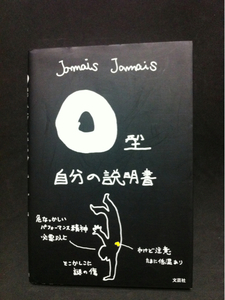 Jamais Jamais
O型
自分の説明書
危なっかしい
パフォーマンス精神
必要以上
とこかしこに
謎の傷
やけど注意
たまに低温あり
文芸社